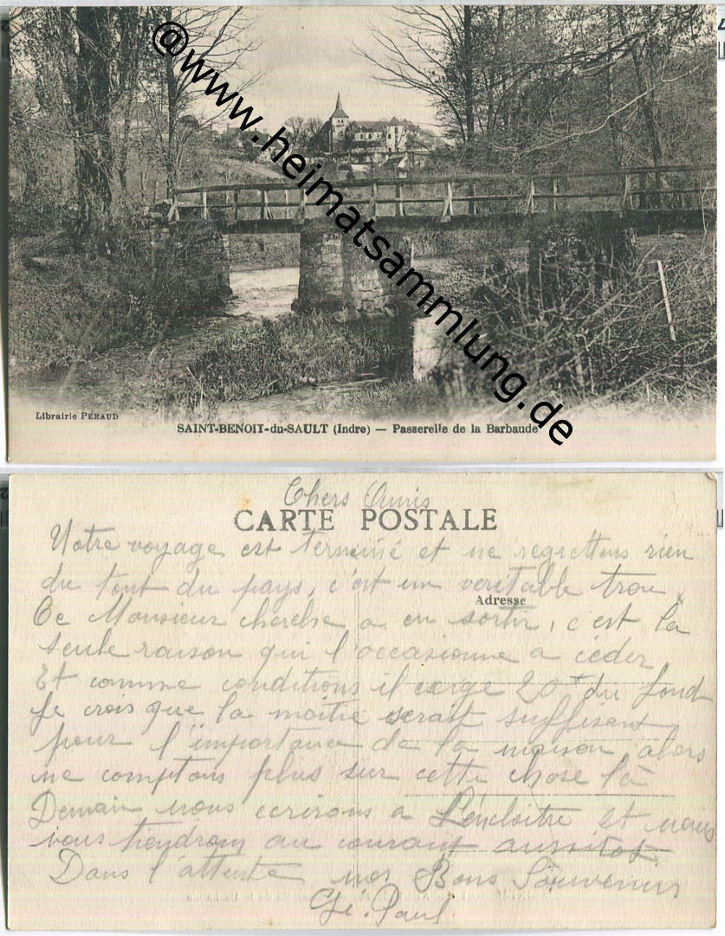 @www.heimatsammlung.de
Librairie PÉRAUD
SAINT-BENOIT-du-SAULT (Indre) — Passerelle de la Barbaude
Chers Amis
CARTE POSTALE
Notre voyage est terminé et ne regrettons rien
du tout du pays, c'est un veritable trou.
Adresse
Ce Monsieur cherche a en sortir, c'est la
seule raison qui l'occasionne a céder
Et comme conditions il exige 20 du fond
Je crois que la moitié serait suffisant
pour l'importance de la maison alors
ne comptons plus sur cette chose là
Demain nous ecrirons a Lencloitre et nous
vous tiendrons au courant aussitot
Dans l'attente nos Bons Souvenirs
Paul